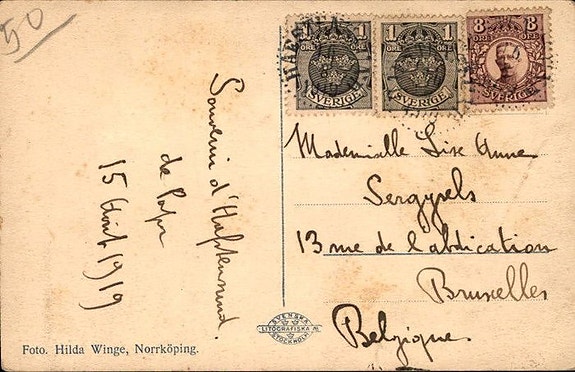 50
1 ÖRE 1 ÖRE
SVERIGE
1 ÖRE 1 ÖRE
SVERIGE
8 ÖRE 8 ÖRE
SVERIGE
Souvenir d'Hafstensund.
de Papa
15 Août 1919
Mademoiselle Lise Anne
Sergysels
13 rue de l'abdication
Bruxelles
Belgique
SVENSKA
LITOGRAFISKA AB.
STOCKHOLM
Foto. Hilda Winge, Norrköping.